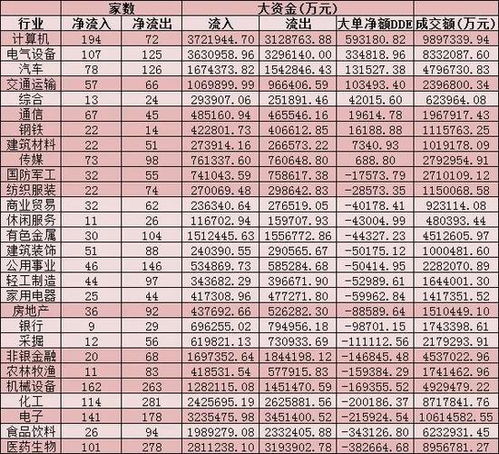 家数 大资金(万元)
行业 净流入 净流出 流入 流出 大单净额DDE 成交额(万元)
计算机 194 72 3721944.70 3128763.88 593180.82 9897339.94
电气设备 107 125 3630958.96 3296140.00 334818.96 8332087.60
汽车 78 126 1674373.82 1542846.43 131527.38 4796730.83
交通运输 57 66 1069899.99 966406.59 103493.40 2396800.34
综合 13 24 293907.06 251891.46 42015.60 623964.08
通信 67 45 485160.94 465546.16 19614.78 1967917.43
钢铁 22 14 422801.73 406612.85 16188.88 1115763.25
建筑材料 22 51 273914.16 266573.22 7340.93 1019178.09
传媒 73 98 761337.60 760648.80 688.80 2792954.91
国防军工 32 55 741043.59 758617.38 -17573.79 2710109.12
纺织服装 22 74 270069.48 298642.83 -28573.35 1150068.58
商业贸易 32 62 236340.64 276519.05 -40178.41 923114.08
休闲服务 11 26 116702.94 159707.93 -43004.99 480393.44
有色金属 30 104 1512445.63 1556772.86 -44327.23 4512605.97
建筑装饰 51 88 240390.55 290565.67 -50175.12 1000481.60
公用事业 46 146 534869.73 585284.68 -50414.95 2282070.89
轻工制造 44 97 343682.29 396671.90 -52989.61 1644001.30
家用电器 25 44 417308.96 477271.80 -59962.84 1417351.52
房地产 36 92 437692.66 526282.30 -88589.64 1510449.10
银行 9 29 696255.02 794956.18 -98701.15 1743398.61
采掘 12 56 619821.13 730933.69 -111112.56 2179293.91
非银金融 20 68 1697352.64 1844198.12 -146845.48 4537022.96
农林牧渔 11 83 418531.54 577915.83 -159384.29 1741462.96
机械设备 162 263 1282115.08 1451470.59 -169355.52 4929479.22
化工 114 281 2425695.19 2625881.56 -200186.37 8717841.76
电子 141 178 3235475.98 3451400.52 -215924.54 10614582.55
食品饮料 26 94 1989279.08 2332405.88 -343126.80 6232931.45
医药生物 101 278 2811238.10 3193902.78 -382664.68 8956781.27